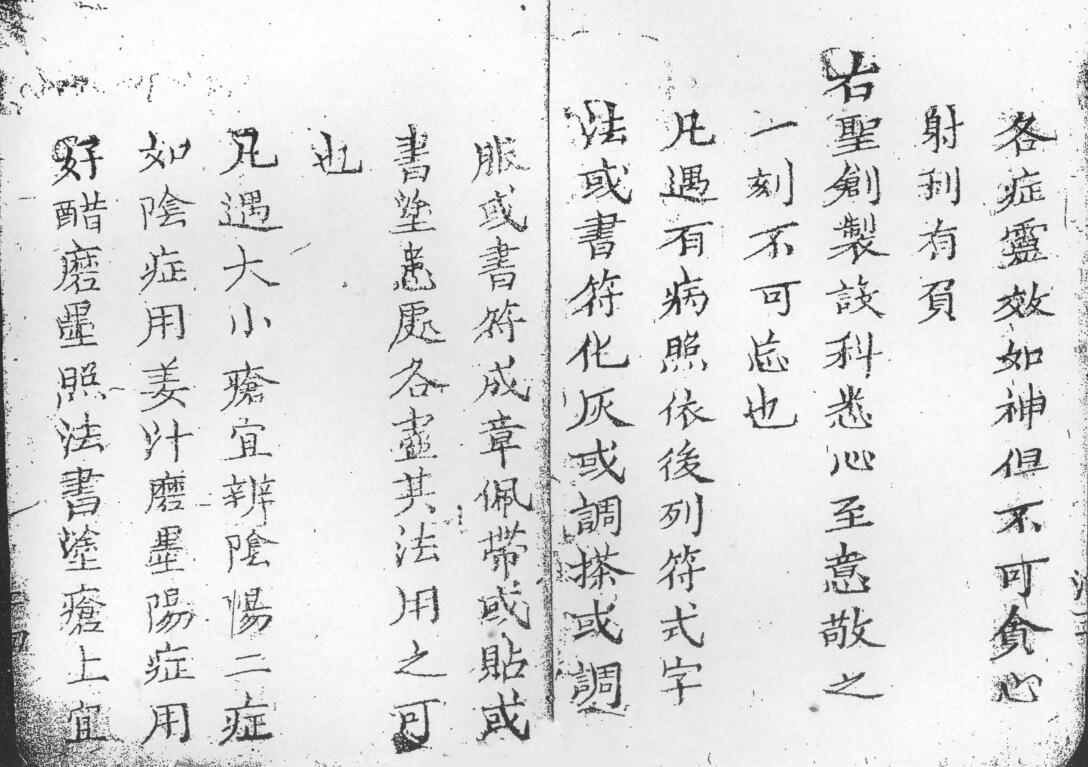 各症靈效如神但不可貪心
射利有負
右聖創製設科悉心至意敬之
一刻不可忘也
凡遇有病照依後列符式字
法或書符化灰或調搽或調
服或書符成章佩帶或貼或
書塗患處各盡其法用之可
也
凡遇大小瘡宜辨陰陽二症
如陰症用姜汁磨墨陽症用
好醋磨墨照法書塗瘡上宜